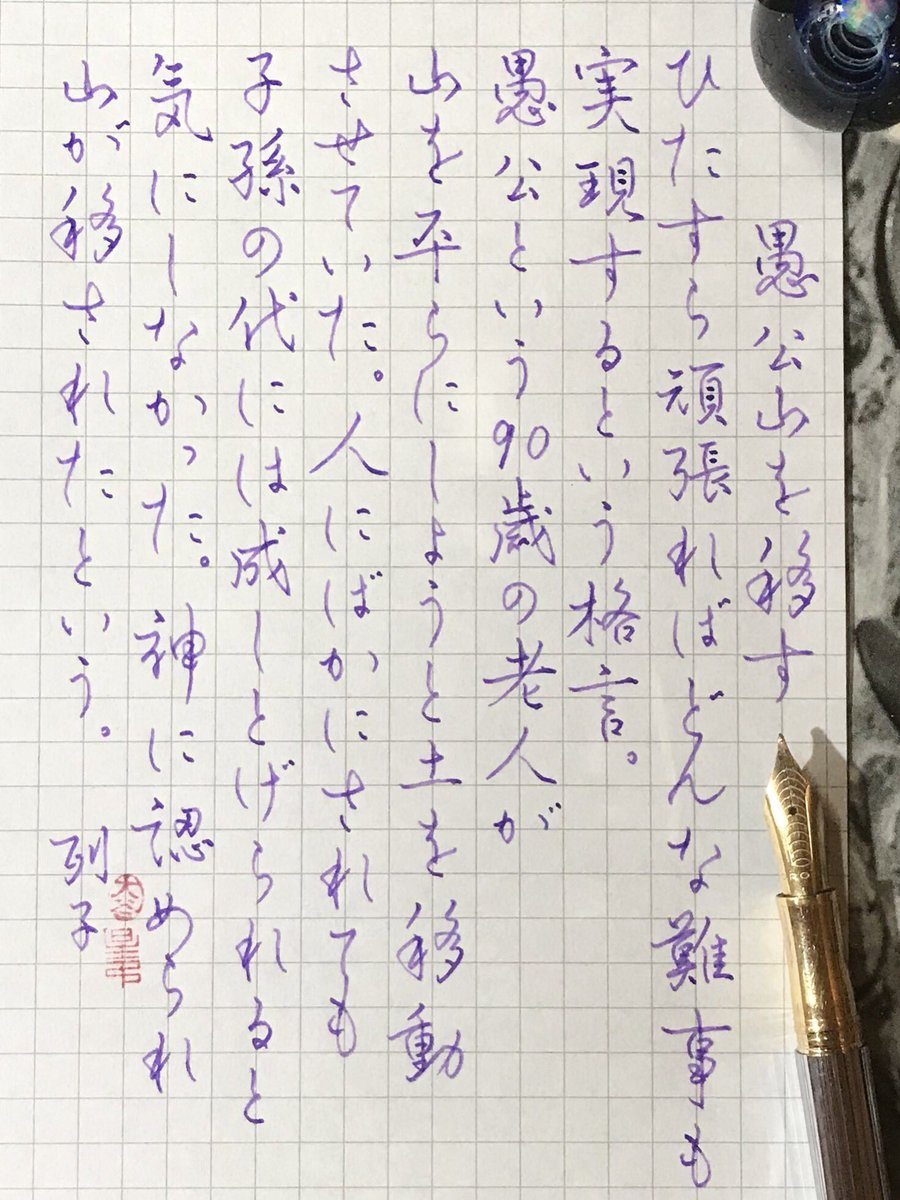 愚公山を移す
ひたすら頑張ればどんな難事も
実現するという格言。
愚公という90歳の老人が
山を平らにしようと土を移動
させていた。人にばかにされても
子孫の代には成しとげられると
気にしなかった。神に認められ
山が移されたという。 列子